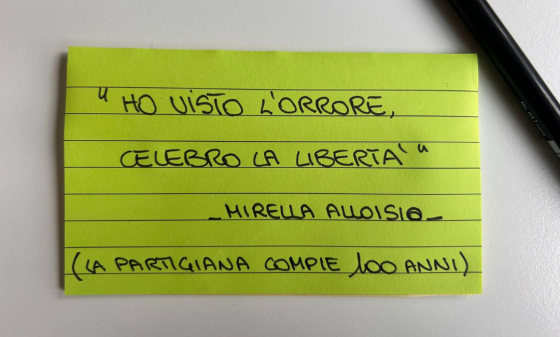 " HO VISTO L'ORRORE,
CELEBRO LA LIBERTA' "
_MIRELLA ALLOISIO_
(LA PARTIGIANA COMPIE 100 ANNI)